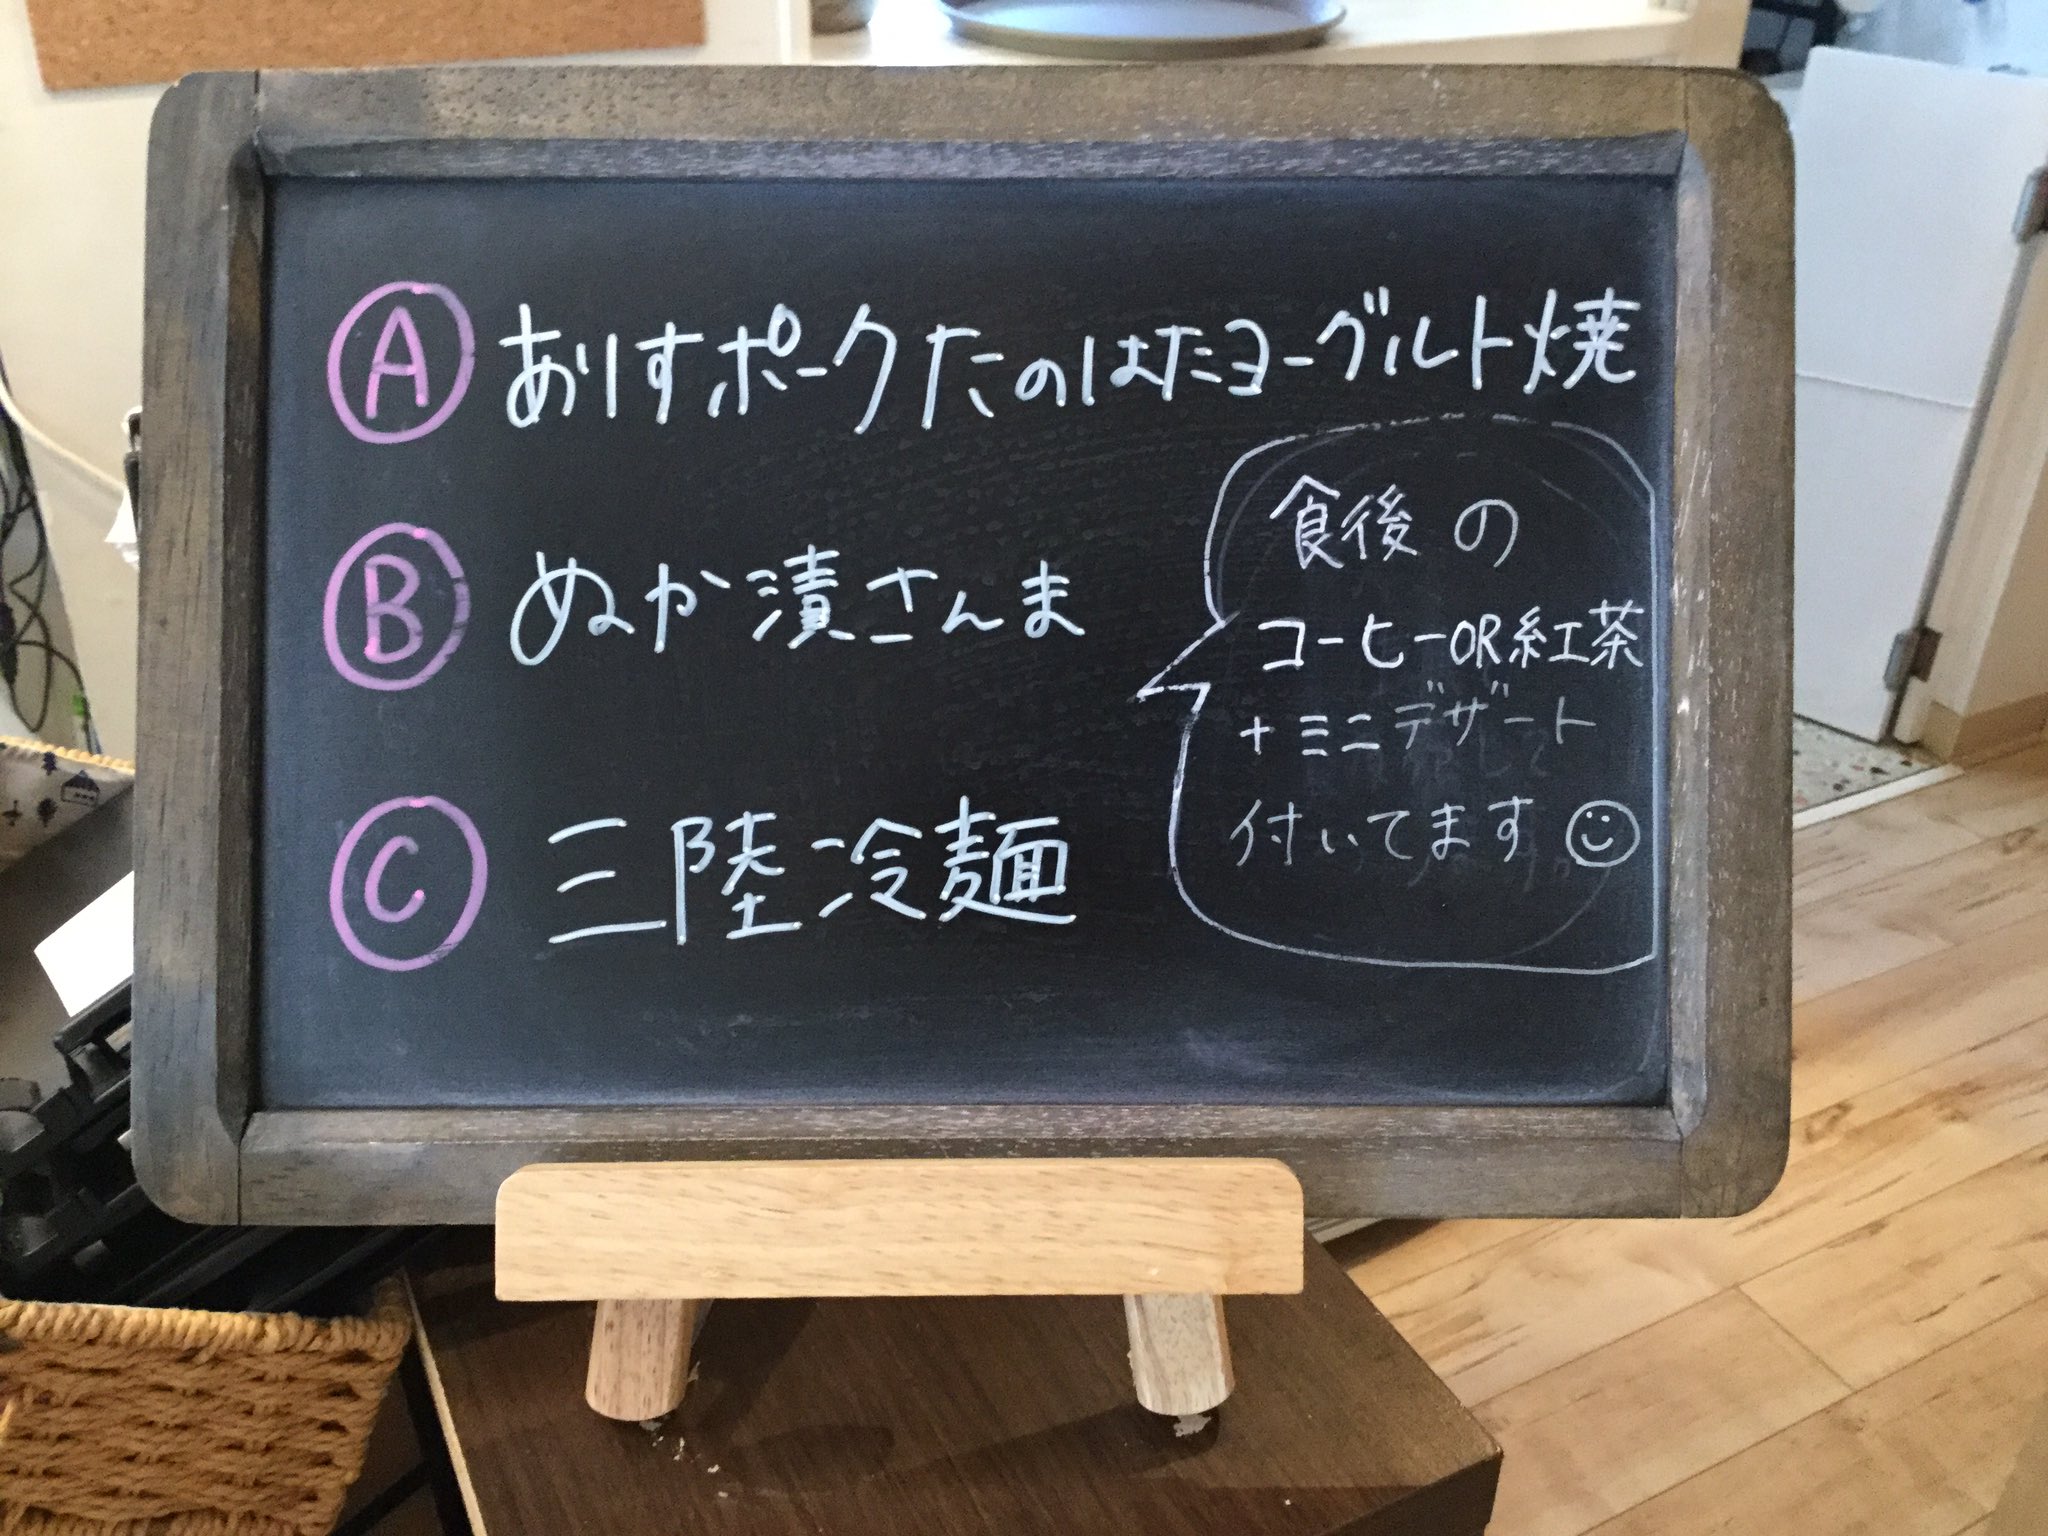 Ⓐ ありすポークたのはたヨーグルト焼
Ⓑ ぬか漬さんま
Ⓒ 三陸冷麺
食後の
コーヒーOR紅茶
+ミニデザート
付いてます☺